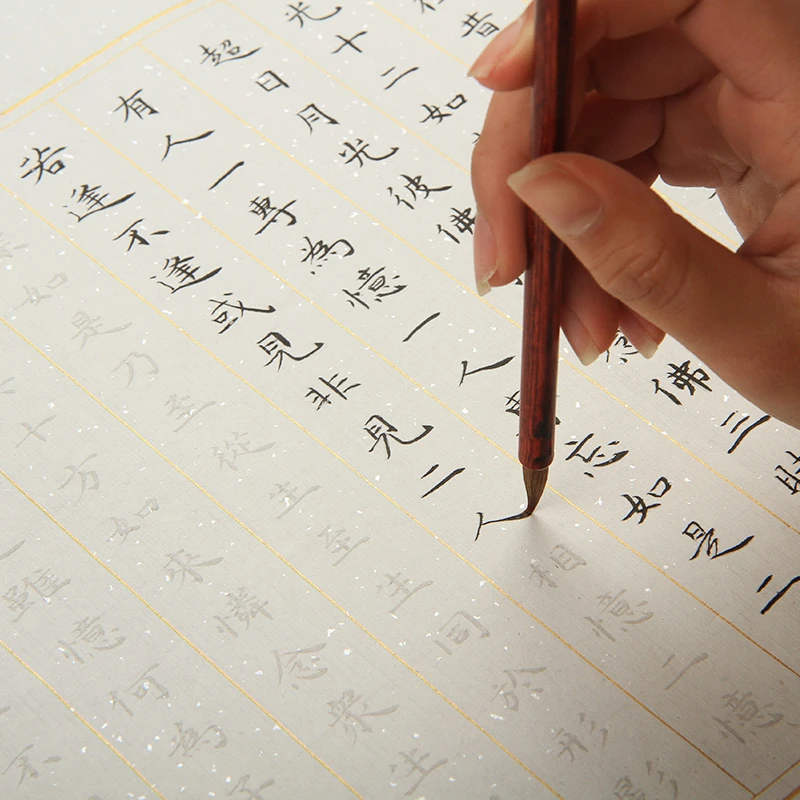 昔
光十二如
超日月光彼佛念佛三
有人一專為憶一人專忘如是二
若逢不逢或見非見二人相憶二憶
深如是乃至從生至生同於形影
十方如來憐念眾生
雖憶何為子
不